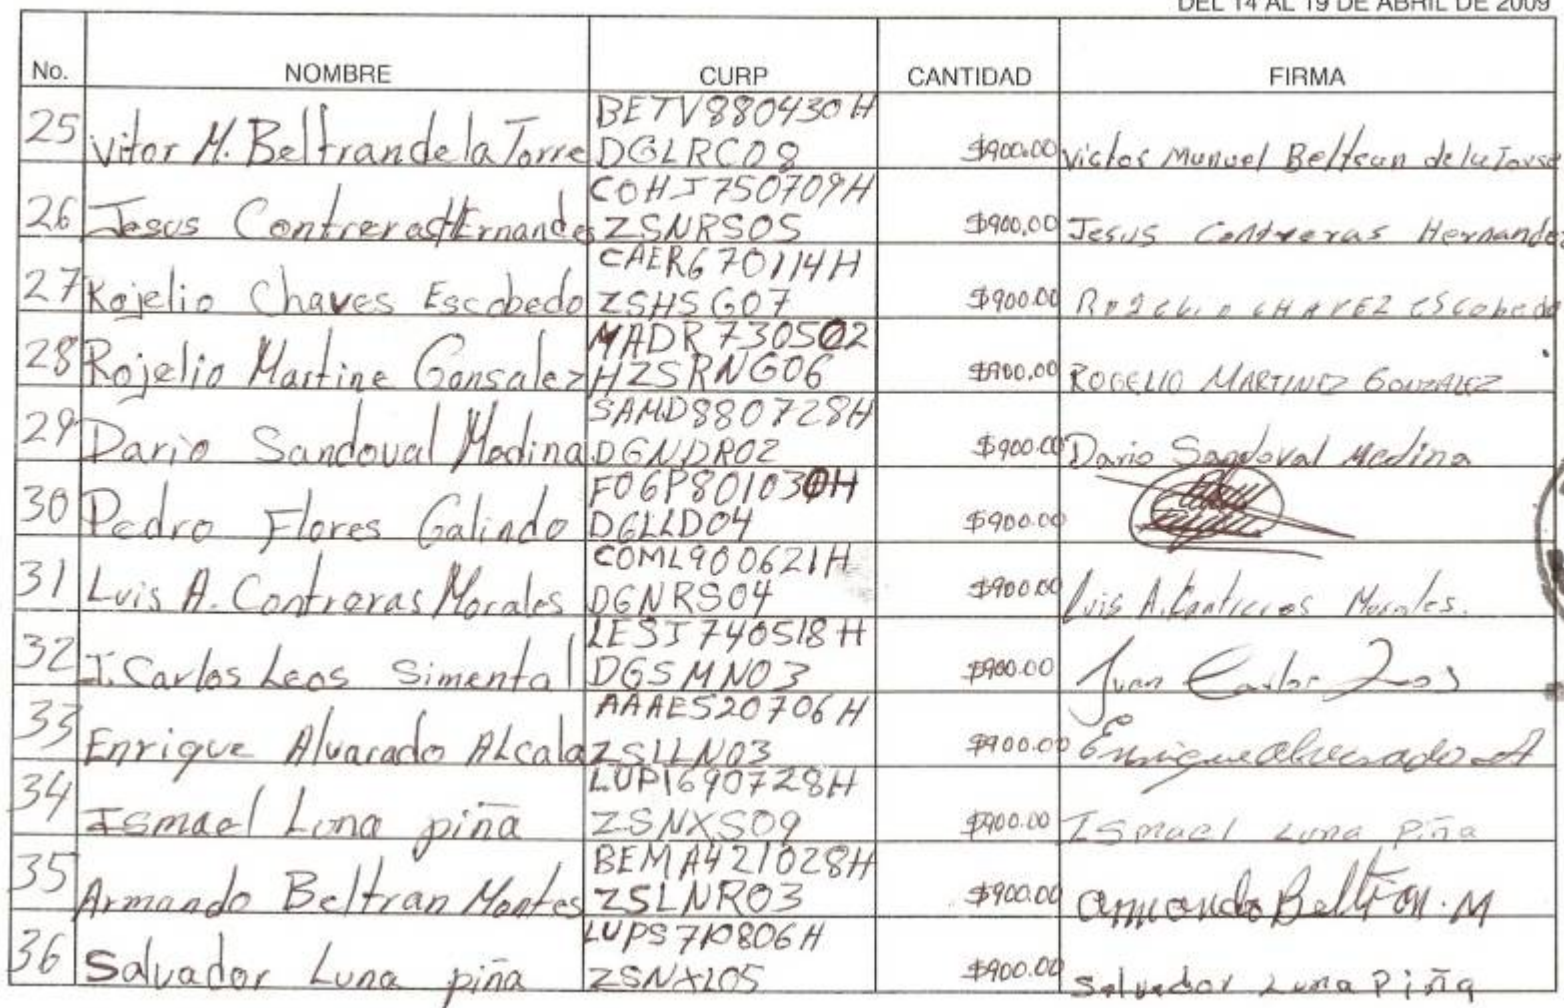 DEL 14 AL 19 DE ABRIL DE 2009
No. NOMBRE CURP CANTIDAD FIRMA
25 Vitor M. Beltran de la Torre BETV880430H DGLRC08 $900.00 Victor Manuel Beltran de la Torre
26 Jesus Contreras Hernande COHJ750709H ZSNRS05 $900.00 Jesus Contreras Hernandez
27 Rojelio Chaves Escobedo CAER670114H ZSHSG07 $900.00 Rogelio CHAVEZ Escobedo
28 Rojelio Martine Gonsalez MADR730502 HZSRNG06 $900.00 ROGELIO MARTINEZ GONZALEZ
29 Dario Sandoval Medina SAMD880728H DGNDR02 $900.00 Dario Sandoval Medina
30 Pedro Flores Galindo FOGP801030H DGLLD04 $900.00
31 Luis A. Contreras Morales COML900621H DGNRS04 $900.00 Luis A. Contreras Morales.
32 J. Carlos Leos Simental LESJ740518H DGSMN03 $900.00 Juan Carlos Leos
33 Enrique Alvarado Alcala AAAE520706H ZSLLN03 $900.00 Enrique Alvarado A
34 Ismael Luna piña LUPI690728H ZSNXS09 $900.00 Ismael Luna Piña
35 Armando Beltran Montes BEMA421028H ZSLNR03 $900.00 Armando Beltran. M
36 Salvador Luna piña LUPS710806H ZSNXL05 $900.00 Salvador Luna Piña